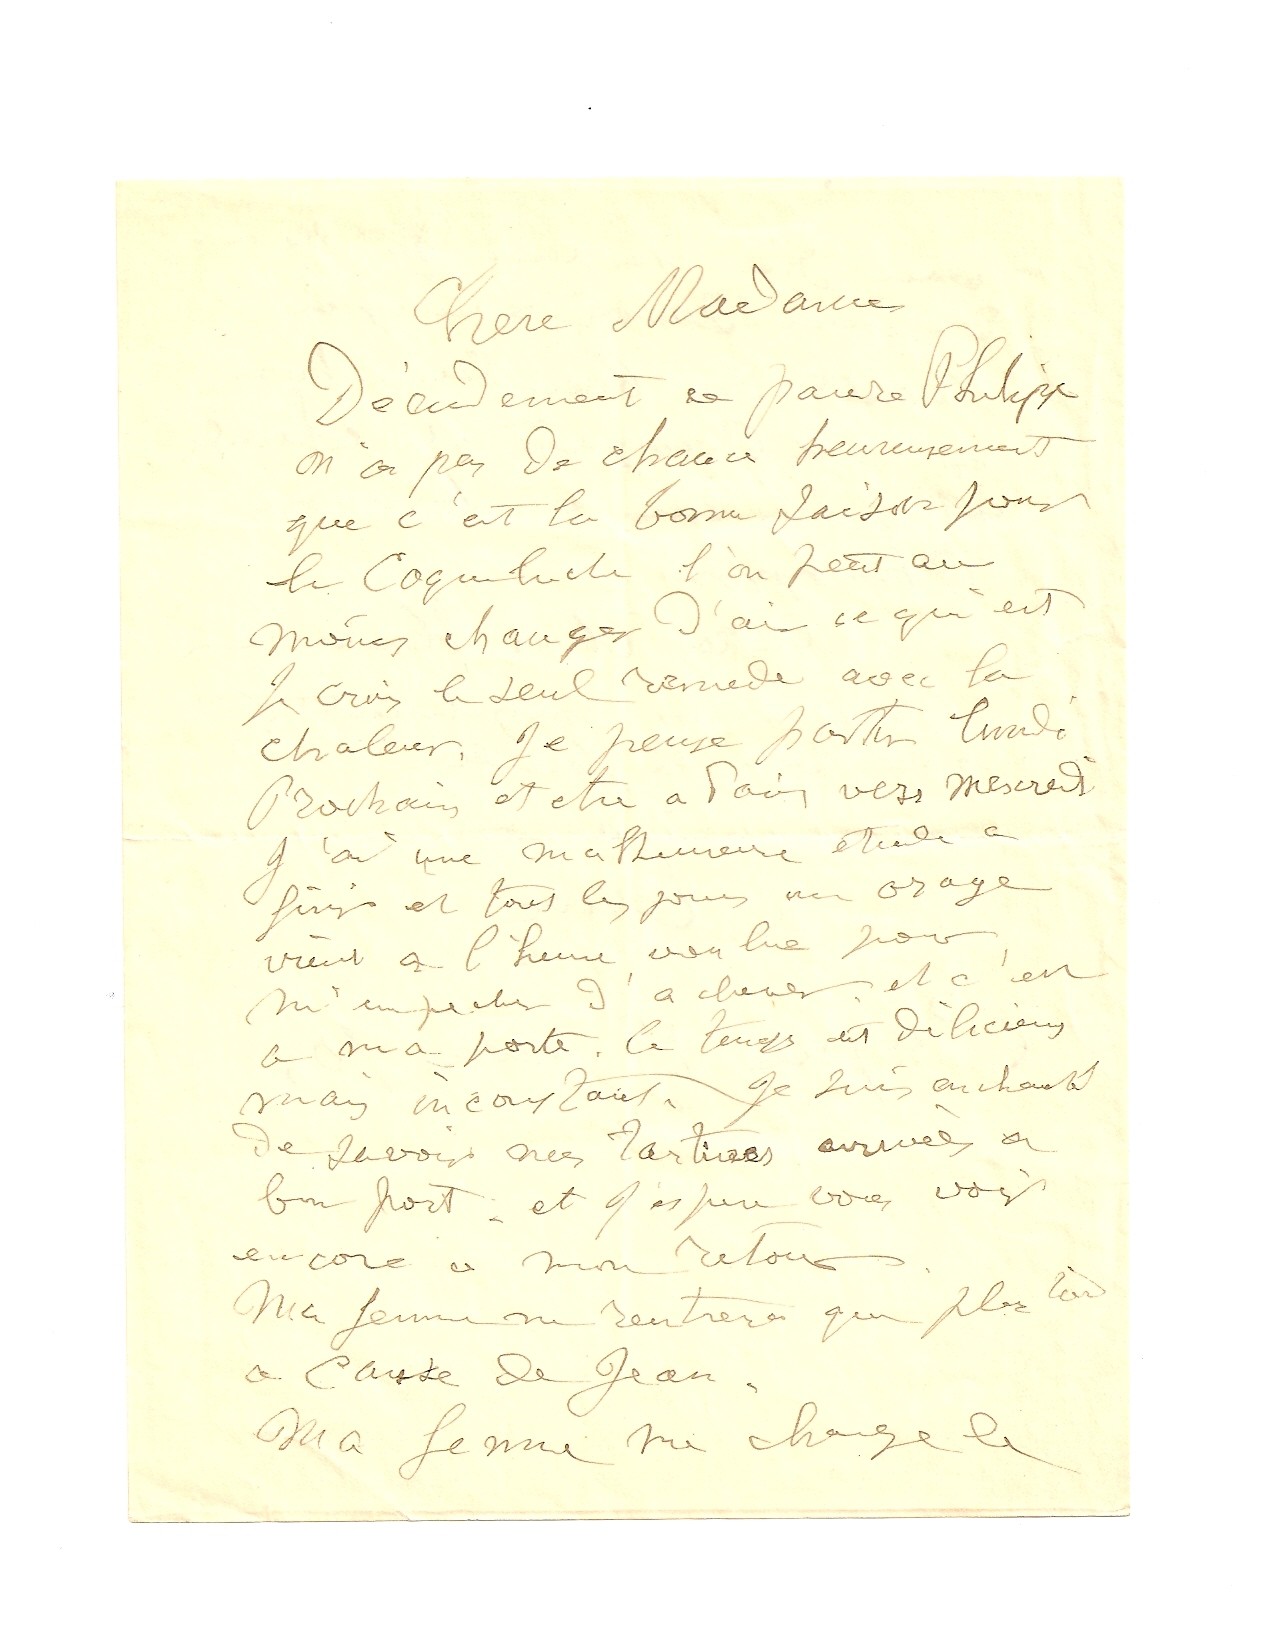 Chere Madame
Décidement ce pauvre Philippe
n'a pas de chance heureusement
que c'est la bonne saison pour
la Coqueluche l'on peut au
moins changer d'air ce qui est
je crois le seul remede avec la
chaleur. Je pense partir lundi
Prochain et etre a Paris vers mercredi
J'ai une malheureuse etude a
finir et tous les jours un orage
vient a l'heure voulue pour
m'empecher d'achever, et c'est
a ma porte. le temps est délicieux
mais inconstant. Je suis enchanté
de savoir nes tartines arrivées a
bon port. et j'espere vous voir
encore a mon retour.
Ma femme ne rentrera que plus tard
a cause de Jean.
Ma femme me charge de